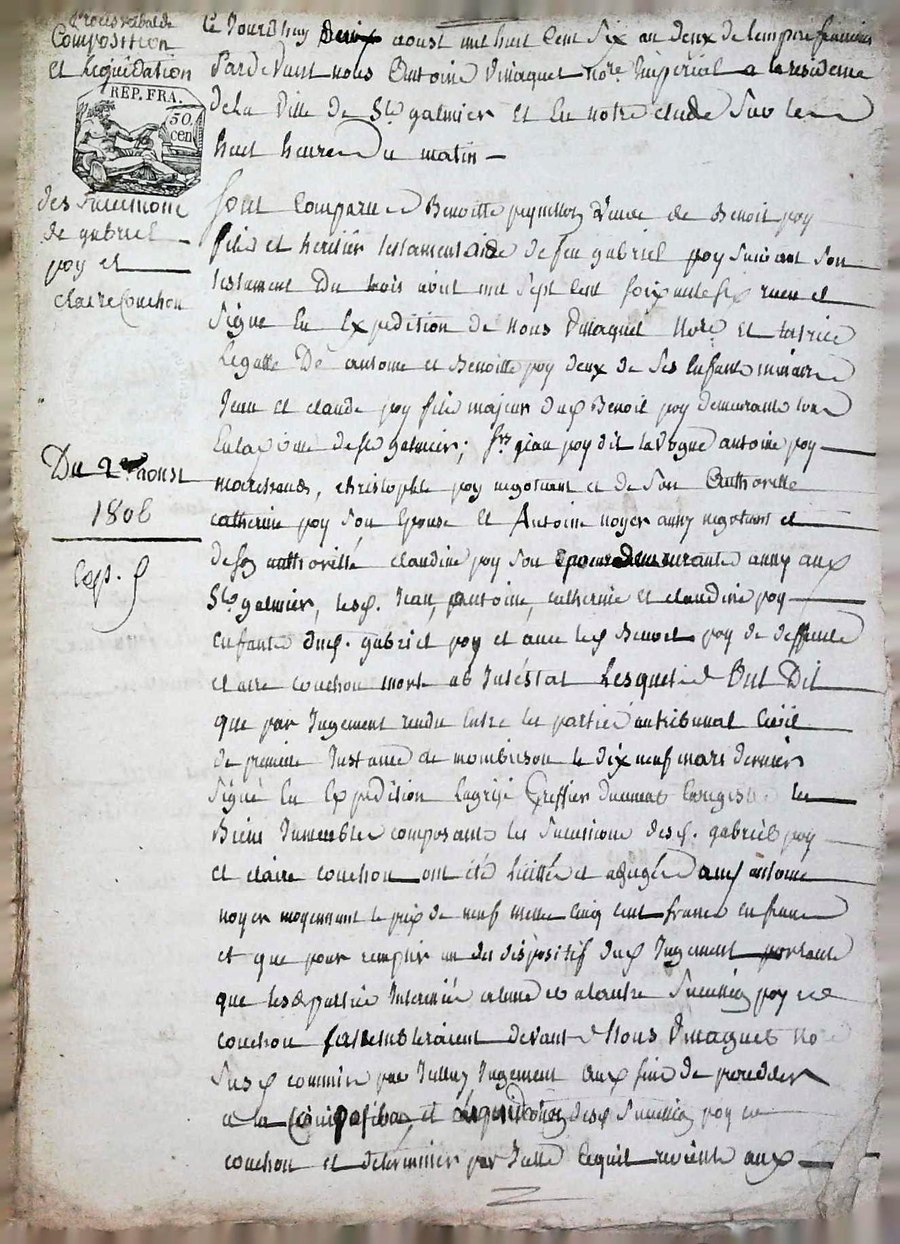 Procès verbal de
Composition
et liquidation
REP. FRA.
50
cen
des successions
de gabriel
poy et
claire Couchon
Du 2 aoust
1806
Exp. g
Ce Jourdhuy Deux aoust mil huit Cent Six an deux de lempire francois
Pardevant nous Antoine Vinaguet Nore. Imperial a la residence
de la Ville de St galmier et En notre etude Sur les
huit heures Du matin
Sont Comparus Benoitte Veuve de Benoit poy
fils et heritier testamentaire de feu gabriel poy Suivant Son
testament Du trois avril mil Sept Cent Soixante six recu et
Signé En Expedition de nous Nore. Et tutrice
Legalle De antoine et Benoitte poy deux de Ses Enfants mineurs
Jean et claude poy fils majeurs duq Benoit poy demeurants tous
En la de St galmier; Srs jean poy dit laVogue antoine poy
marchands, christophle poy negotiant et de Son Authorité
catherine poy Son Epouse Et Antoine noyer aussy negotiant et
de Son authorité claudine poy Son Epouse demeurants aussy aud
St galmier, lesq. Jean, antoine, catherine et claudine poy
Enfants duq. gabriel poy et avec led Benoit poy de deffunte
claire couchon morte ab Intestat Lesquels Ont Dit
que par Jugement rendu Entre les parties au tribunal Civil
de premiere Instance de montbrison le dix neuf mars dernier
Signé En Expedition Greffier duement Enregistré les
Biens Immeubles composants les Successions desq. gabriel poy
et claire couchon ont été licités et adjugés aud antoine
noyer moyennant le prix de neuf mille Cinq cent francs
et que pour remplir un des dispositif dud Jugement portant
que les parties Interessées a lune et a lautre Succession poy et
couchon Sassembleraient devant Nous No
Susd commis par Icelluy Jugement aux fins de proceder
a la Composition et liquidation desd Successions poy et
couchon et determiner par Icelle Ce quil revient aux